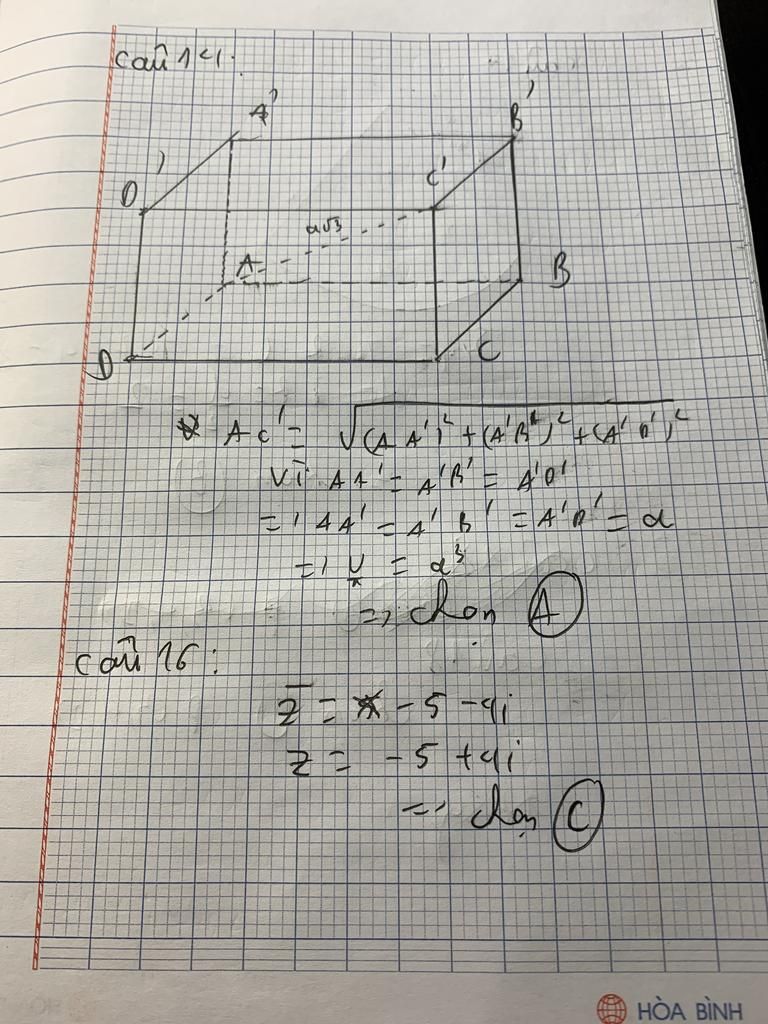 Câu 14:
A'
B'
D'
C'
a√3
A
B
D
C
AC' = √(AA')² + (A'B')² + (A'D')²
Vì AA' = A'B' = A'D'
=) AA' = A'B' = A'D' = a
=) V = a³
=> chọn A
Câu 16:
z̅ = -5 - 4i
z = -5 + 4i
=> chọn C
HÒA BÌNH